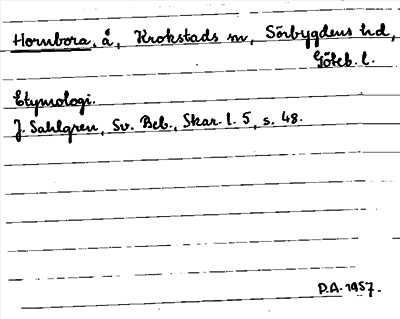 Hornbora, å, Krokstads sn, Sörbygdens hd,
Göteb. l.
Etymologi.
J. Sahlgren, Sv. Beb., Skar. l. 5, s. 48.
P.A. 1957.